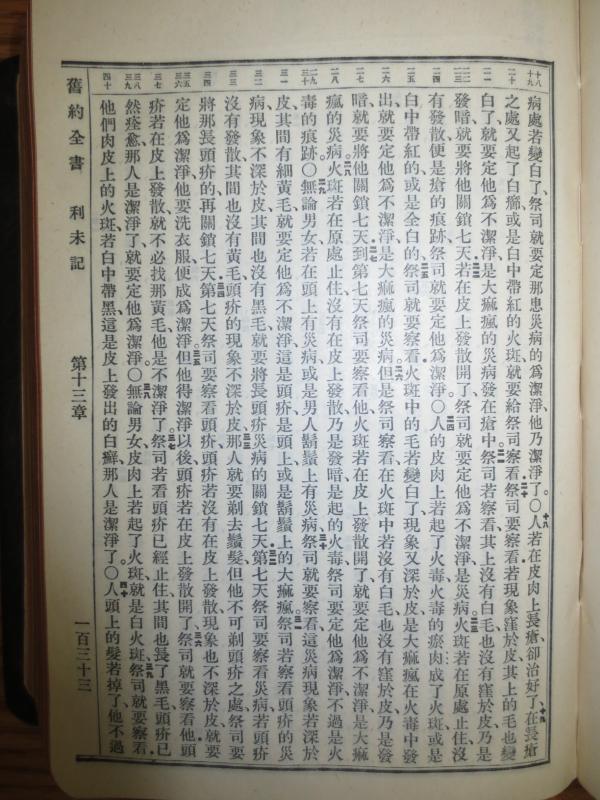 病處若變白了、祭司就要定那患災病的爲潔淨、他乃潔淨了。○人若在皮肉上長瘡、卻治好了、在長瘡
之處又起了白癤、或是白中帶紅的火斑、就要給祭司察看、祭司要察看、若現象窪於皮、其上的毛也變
白了、就要定他爲不潔淨、是大痲瘋的災病發在瘡中、祭司若察看、其上沒有白毛、也沒有窪於皮、乃是
發暗、就要將他關鎖七天、若在皮上發散開了、祭司就要定他爲不潔淨、是災病、火斑若在原處止住、沒
有發散、便是瘡的痕跡、祭司就要定他爲潔淨。○人的皮肉上若起了火毒、火毒的瘀肉成了火斑、或是
白中帶紅的、或是全白的、祭司就要察看、火斑中的毛若變白了、現象又深於皮、是大痲瘋在火毒中發
出、就要定他爲不潔淨、是大痲瘋的災病。但是祭司察看、在火斑中若沒有白毛、也沒有窪於皮、乃是發
暗、就要將他關鎖七天。到第七天、祭司要察看他、火斑若在皮上發散開了、就要定他爲不潔淨、是大痲
瘋的災病。火斑若在原處止住、沒有在皮上發散、乃是發暗、是起的火毒、祭司要定他爲潔淨、不過是火
毒的痕跡。○無論男女、若在頭上有災病、或是男人鬍鬚上有災病、祭司就要察看、這災病現象若深於
皮、其間有細黃毛、就要定他爲不潔淨、這是頭疥、是頭上或是鬍鬚上的大痲瘋。祭司若察看頭疥的災
病、現象不深於皮、其間也沒有黑毛、就要將長頭疥災病的關鎖七天。第七天、祭司要察看災病、若頭疥
沒有發散、其間也沒有黃毛、頭疥的現象不深於皮、那人就要剃去鬚髮、但他不可剃頭疥之處、祭司要
將那長頭疥的、再關鎖七天。第七天、祭司要察看頭疥、頭疥若沒有在皮上發散、現象也不深於皮、就要
定他爲潔淨、他要洗衣服、便成爲潔淨。但他得潔淨以後、頭疥若在皮上發散開了、祭司就要察看他、頭
疥若在皮上發散、就不必找那黃毛、他是不潔淨了。祭司若看頭疥已經止住、其間也長了黑毛、頭疥已
然痊愈、那人是潔淨了、就要定他爲潔淨。○無論男女、皮肉上若起了火斑、就是白火斑、祭司就要察看、
他們肉皮上的火斑、若白中帶黑、這是皮上發出的白癬、那人是潔淨了。○人頭上的髮若掉了、他不過
舊約全書 利未記 第十三章 一百三十三